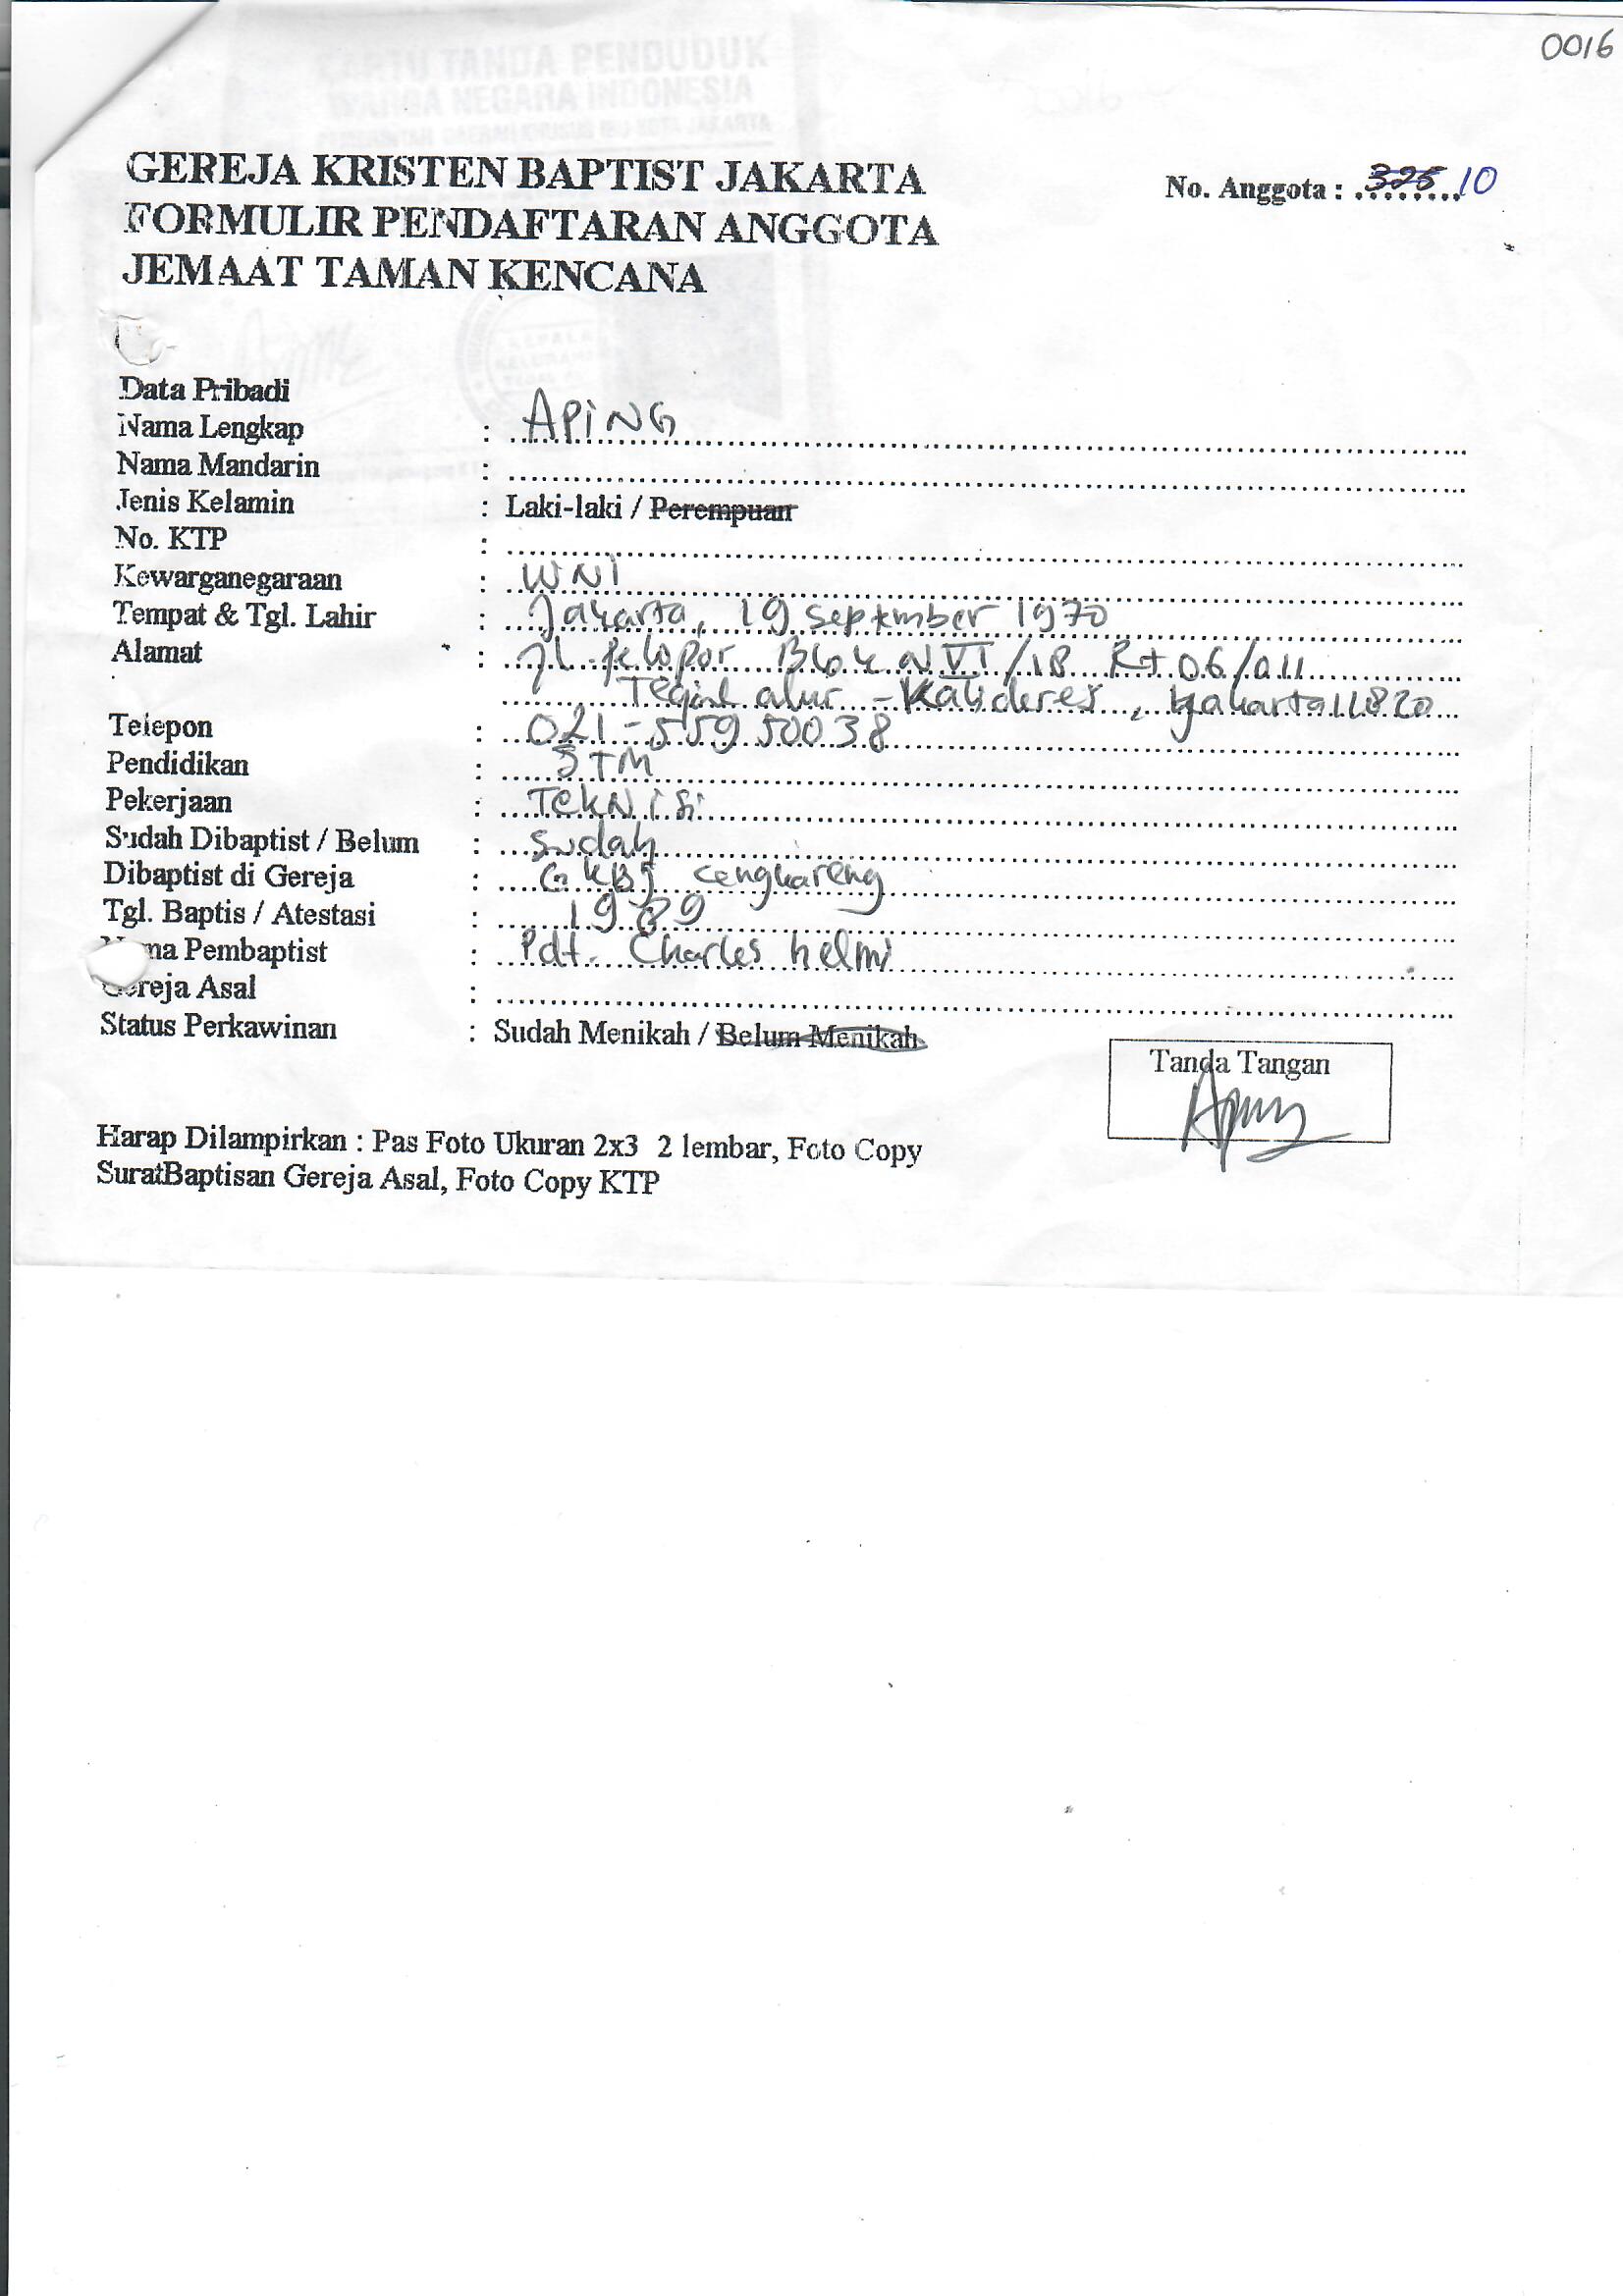 0016
GEREJA KRISTEN BAPTIST JAKARTA
No. Anggota : 325 10
FORMULIR PENDAFTARAN ANGGOTA
JEMAAT TAMAN KENCANA
Data Pribadi
Nama Lengkap : APING
Nama Mandarin :
Jenis Kelamin : Laki-laki / Perempuan
No. KTP :
Kewarganegaraan : WNI
Tempat & Tgl. Lahir : Jakarta, 19 September 1970
Alamat : Jl. Pelopor Blok N VI/18 Rt 06/011
Tegal alur - Kalideres, Jakarta 11820
Telepon : 021-55950038
Pendidikan : STM
Pekerjaan : TEKNiSi
Sudah Dibaptist / Belum : Sudah
Dibaptist di Gereja : GKBJ Cengkareng
Tgl. Baptis / Atestasi : 1989
ma Pembaptist : Pdt. Charles helmi
Gereja Asal :
Status Perkawinan : Sudah Menikah / Belum Menikah
Tanda Tangan
Harap Dilampirkan : Pas Foto Ukuran 2x3 2 lembar, Foto Copy
SuratBaptisan Gereja Asal, Foto Copy KTP